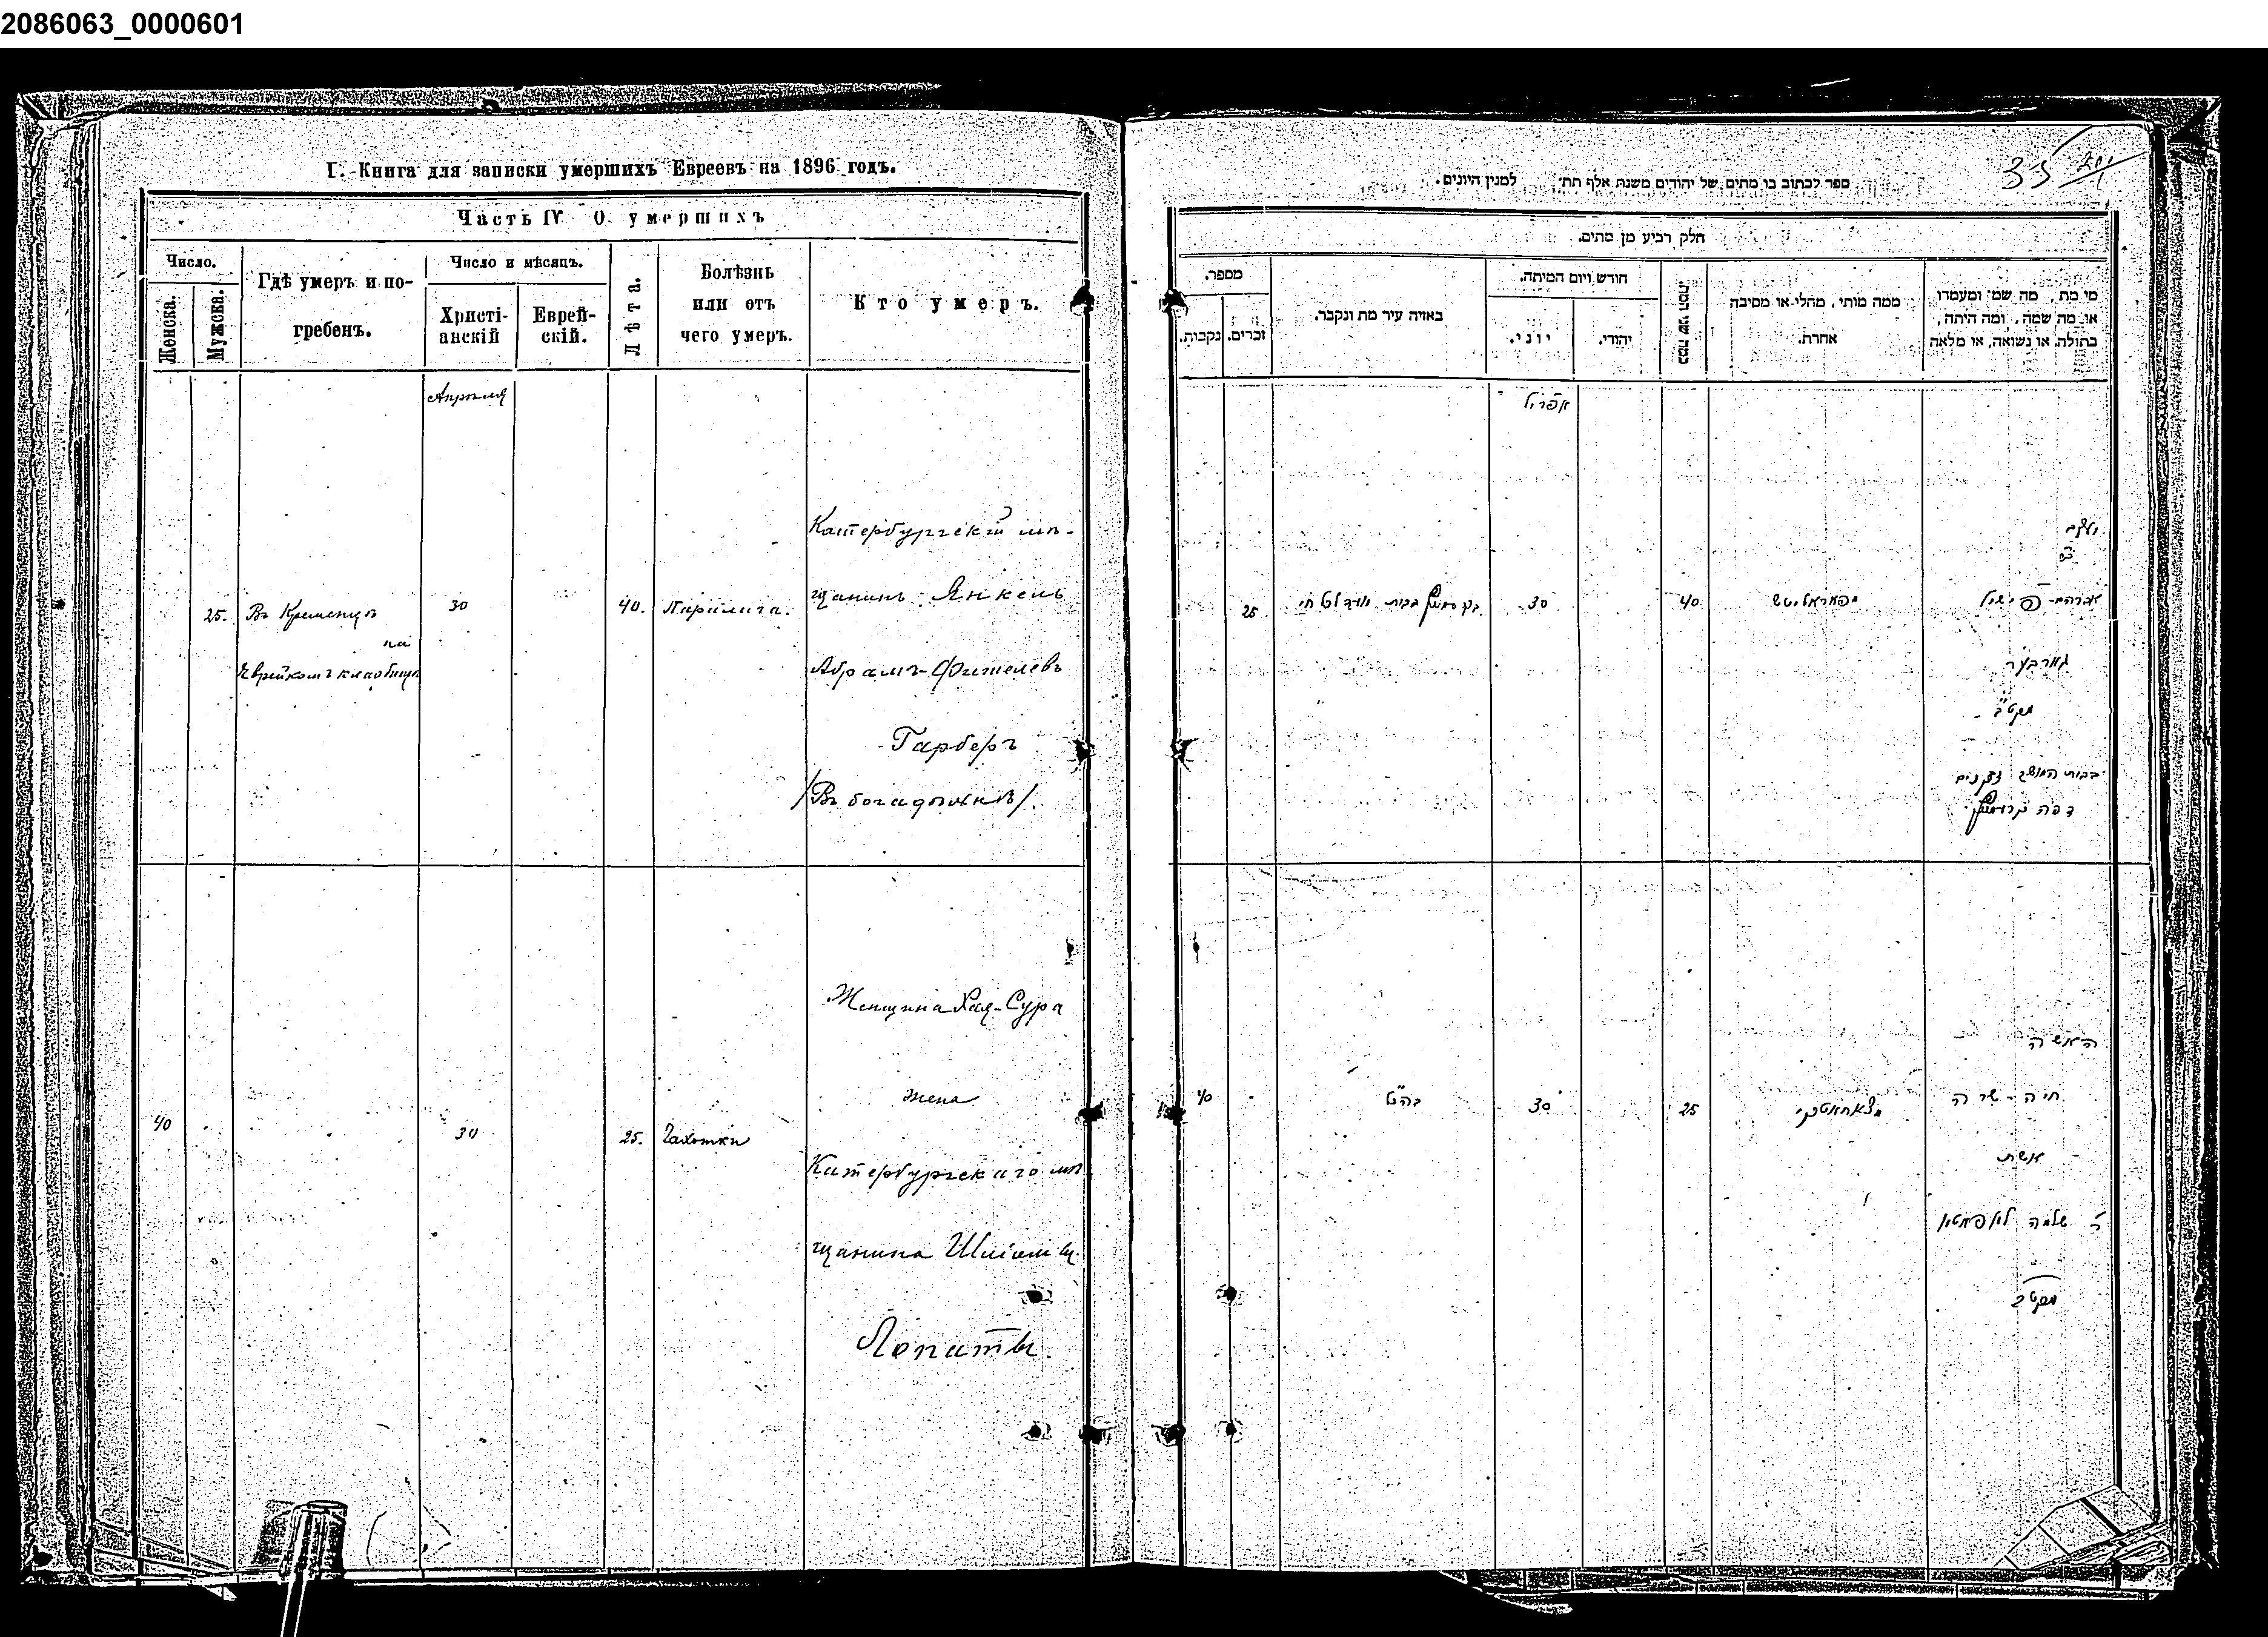 2086063_0000601
Г. Книга для записки умершихъ Евреевъ на 1896 годъ.
Часть IV О умершихъ
Число.
Женска.
Мужска.
Гдѣ умеръ и по-
гребенъ.
Число и мѣсяцъ.
Христі-
анскій
Еврей-
скій.
Лѣта.
Болѣзнь
или отъ
чего умеръ.
Кто умеръ.
Апрѣля
25.
Въ Кременцѣ
на
30
40.
Паралича.
Катербургскій мѣ-
щанинъ Янкель
Абрамъ-Фишелевъ
Гарберъ
/Въ богадѣльнѣ/.
40
30
25.
Чахотки
Женщина Хая-Сура
жена
Катербургскаго мѣ
щанина
Лопаты.
35
ספר לכתוב בו מתים של יהודים משנת אלף תת׳ למנין היונים.
חלק רביע מן מתים.
מספר.
נקבות.
זכרים.
באיזה עיר מת ונקבר.
חודש ויום המיתה.
יוני.
יהודי.
כמה שני המת.
ממה מותי, מחלי או מסיבה
אחרת.
מי מת, מה שמו ומעמדו
או מה שמה, ומה היתה,
בתולה, או נשואה, או מלאה
אפריל
25
30
40
יעקב
אברהם פישיל
גארבער
40
בהנ״ל
30
25
האשה
חיה-שרה
אשת
ר׳ שלמה לאפאטא